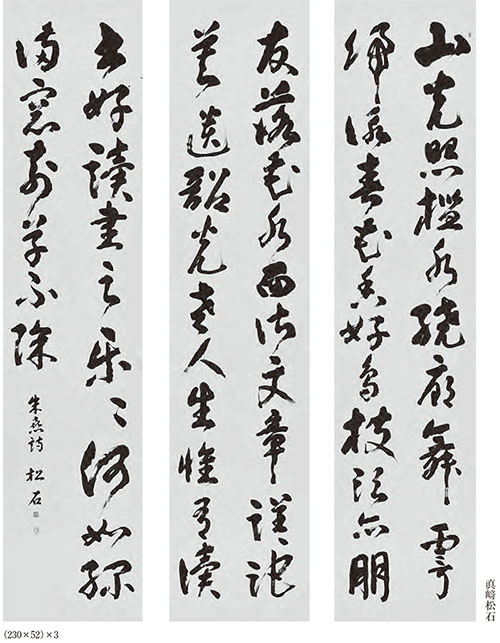 山光照檻水繞廊舞雩
歸詠春風香好鳥枝頭亦朋
友落花水面皆文章蹉跎
莫遣韶光老人生惟有讀
書好讀書之樂〻何如綠
滿窓前草不除
朱熹詩 松石
真﨑松石
(230×52)×3